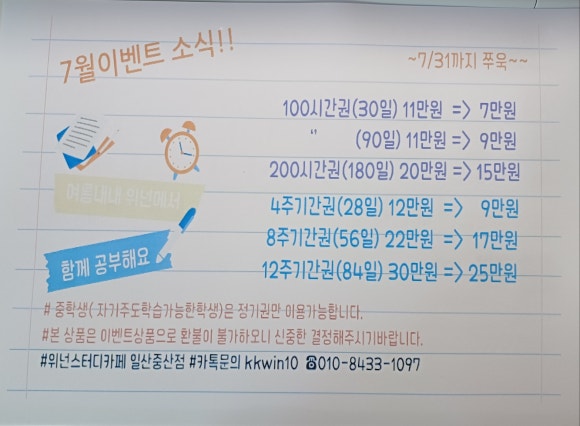 7월이벤트 소식!!
~7/31까지 쭈욱~~
100시간권(30일) 11만원 => 7만원
〃 (90일) 11만원 => 9만원
200시간권(180일) 20만원 => 15만원
4주기간권(28일) 12만원 => 9만원
8주기간권(56일) 22만원 => 17만원
12주기간권(84일) 30만원 => 25만원
여름내내 위넌에서
함께 공부해요
# 중학생( 자기주도학습가능한학생)은 정기권만 이용가능합니다.
#본 상품은 이벤트상품으로 환불이 불가하오니 신중한 결정해주시기바랍니다.
#위넌스터디카페 일산중산점 #카톡문의 kkwin10 ☎010-8433-1097